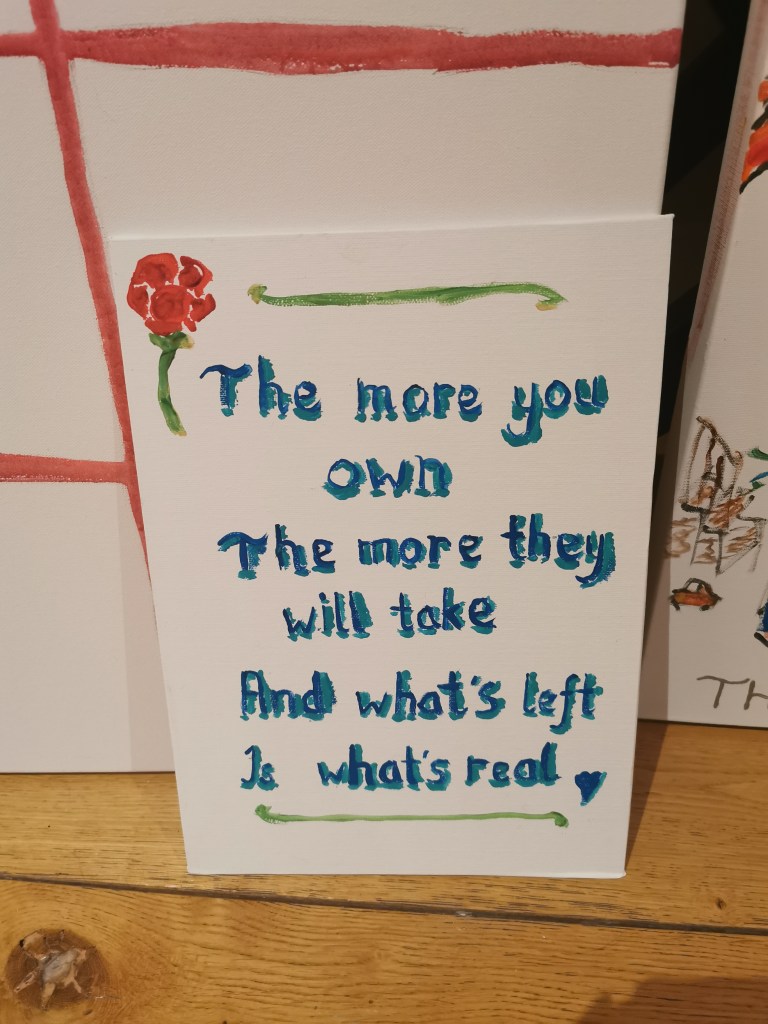 The more you
own
The more they
will take
And what's left
Is what's real
Th